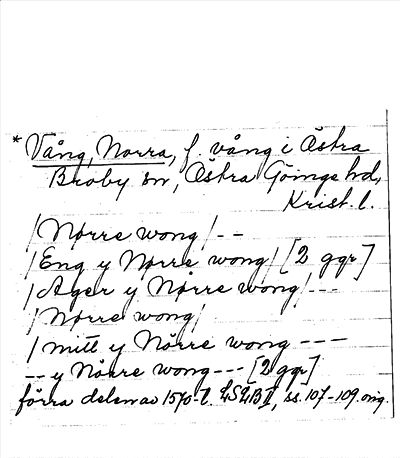 * Vång, Norra, f. vång i Östra
Broby sn, Östra Göinge hd,
Krist. l.
/Nørre wong/--
/Eng y Nørre wong/ [2 ggr]
/Ager y Nørre wong/---
/Nørre wong/
/mitt y Nörre wong ---
-- y Nörre wong --- [2 ggr]
förra delen av 1570-t. LSLB II, ss. 107-109. orig.